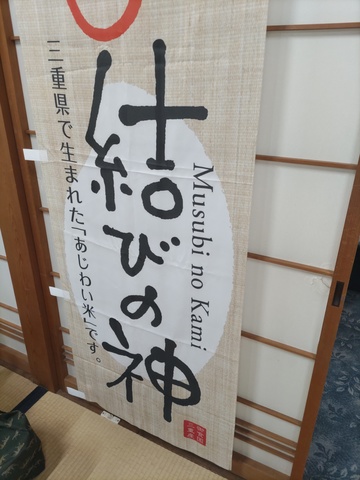 結びの神
Musubi no Kami
三重県で生まれた「あじわい米」です。